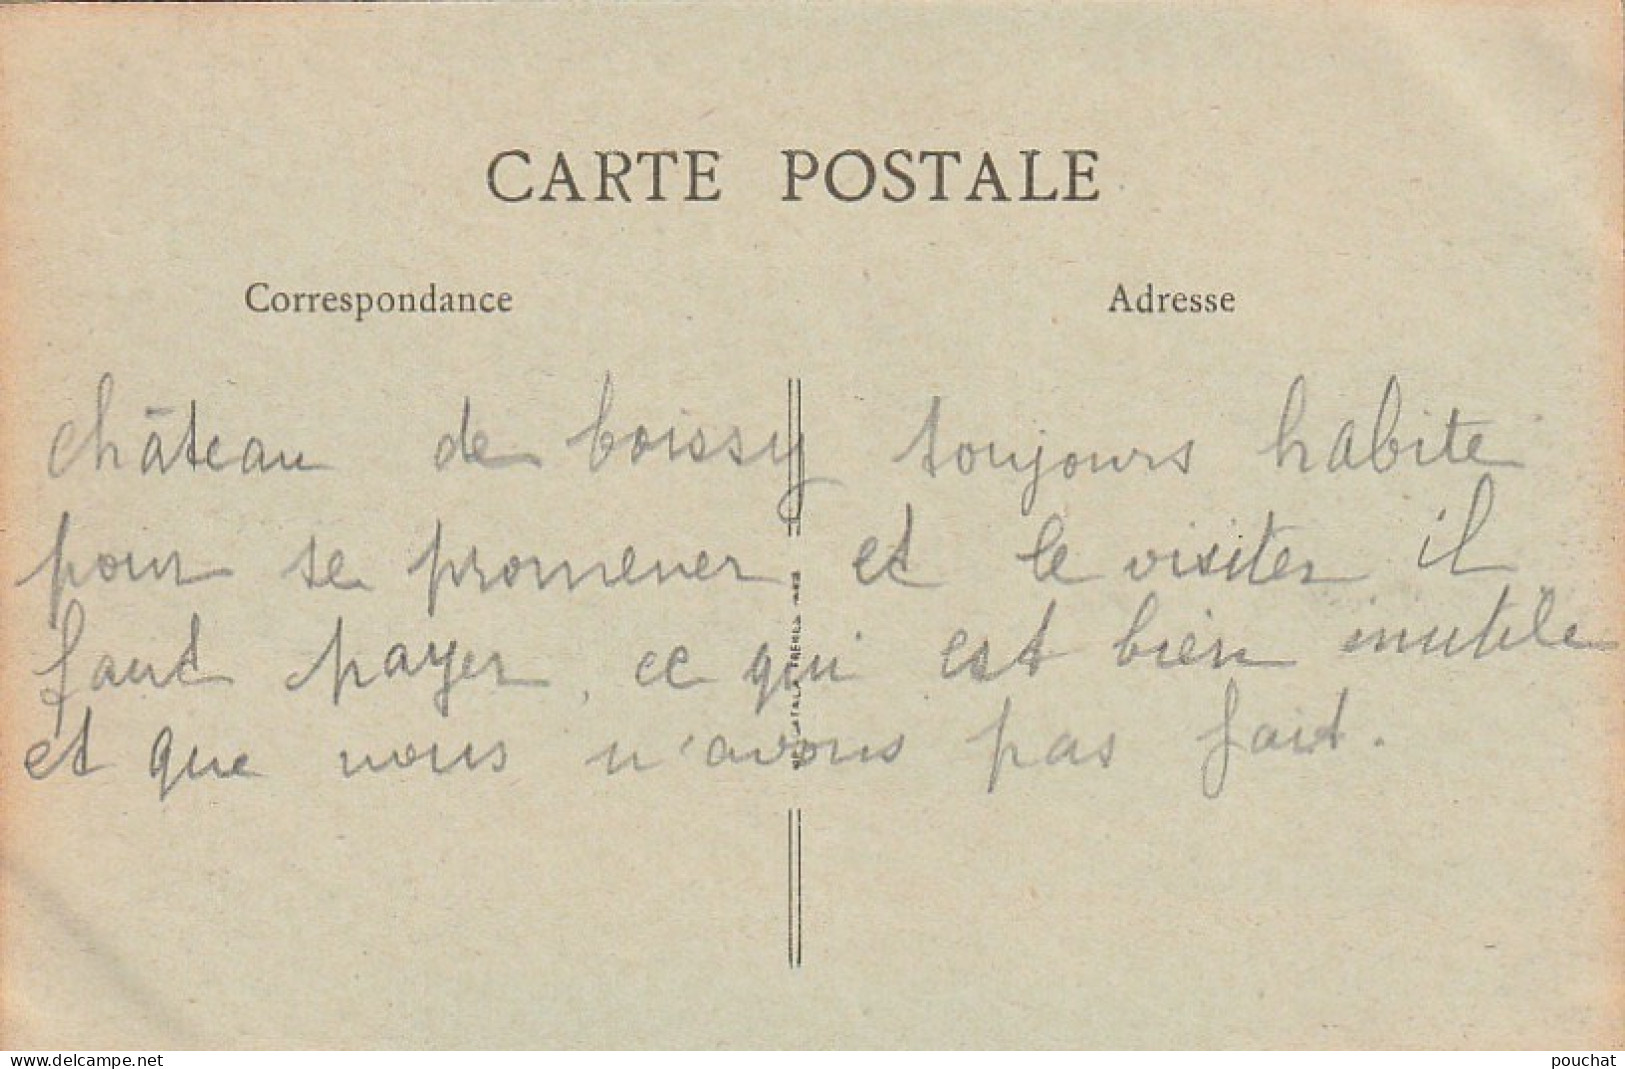 CARTE POSTALE
Correspondance
Adresse
château de boissy toujours habite
pour se promener et le visiter il
faut payer, ce qui est bien inutile
et que nous n'avons pas fait.
www.delcampe.net
pouchat